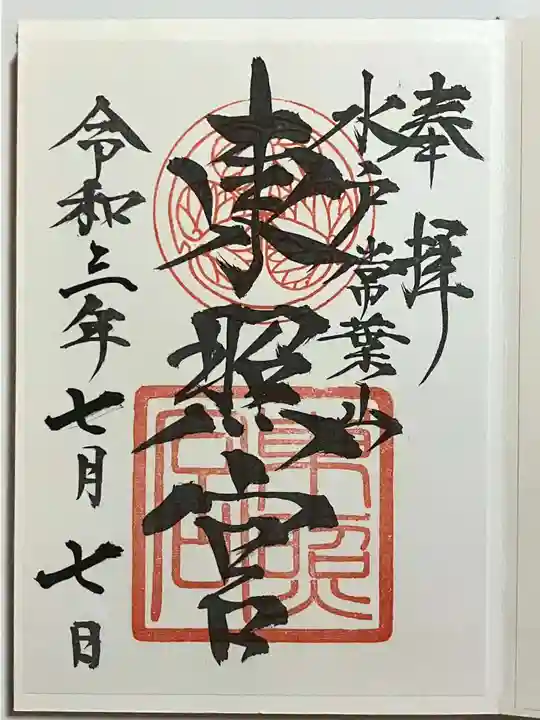 奉拝
水戸常葉山
東照宮
令和三年七月七日
東照
宮印